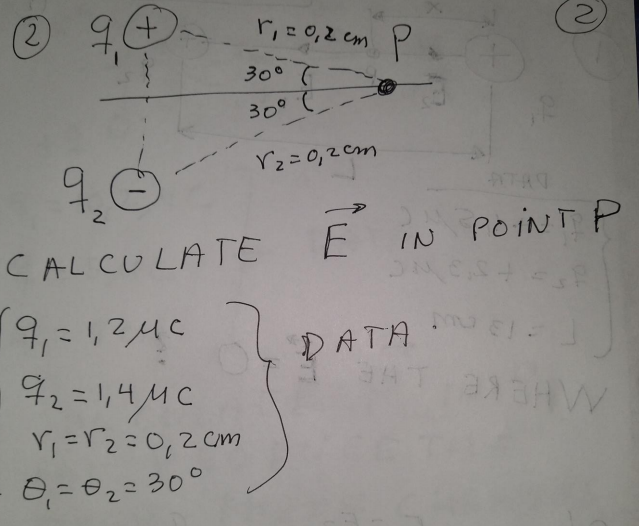 ②
②
q₁ + r₁=0,2cm P
30°
30°
r₂=0,2cm
q₂ −
CALCULATE E⃗ IN POINT P
q₁=1,2μC
DATA
q₂=1,4μC
r₁=r₂=0,2cm
θ₁=θ₂=30°